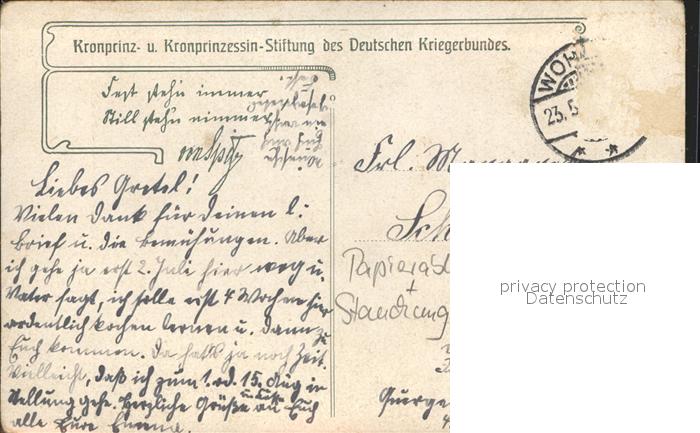 Kronprinz- u. Kronprinzessin-Stiftung des Deutschen Kriegerbundes.
Fest stehn immer
Still stehn nimmer
WOH
23.5
Frl. Margare
Liebes Gretel!
Vielen Dank für Deinen l.
Brief u. die Bemühungen. Aber
ich gehe ja erst 2. Juli hier weg u.
Vater sagt, ich solle erst 4 Wochen hier
ordentlich kochen lernen u. dann zu
Euch kommen. Da hat's ja noch Zeit.
Vielleicht, daß ich zum 1. od. 15. Aug in
Stellung gehe. Herzliche Grüße an Euch
alle Eure
Sch
+
Querge
privacy protection
Datenschutz